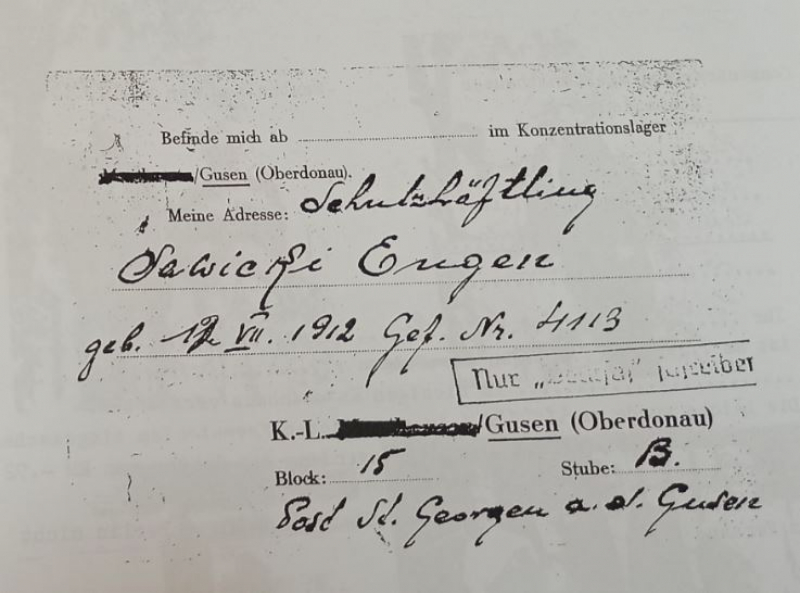 Befinde mich ab im Konzentrationslager
/Gusen (Oberdonau).
Meine Adresse: Schutzhäftling
Sawicki Eugen
geb. VII. 1912 Gef. Nr. 4113
Nur „Deutsch“ schreiben
K.-L. /Gusen (Oberdonau)
Block: 15 Stube: B.
Post St. Georgen a. d. Gusen